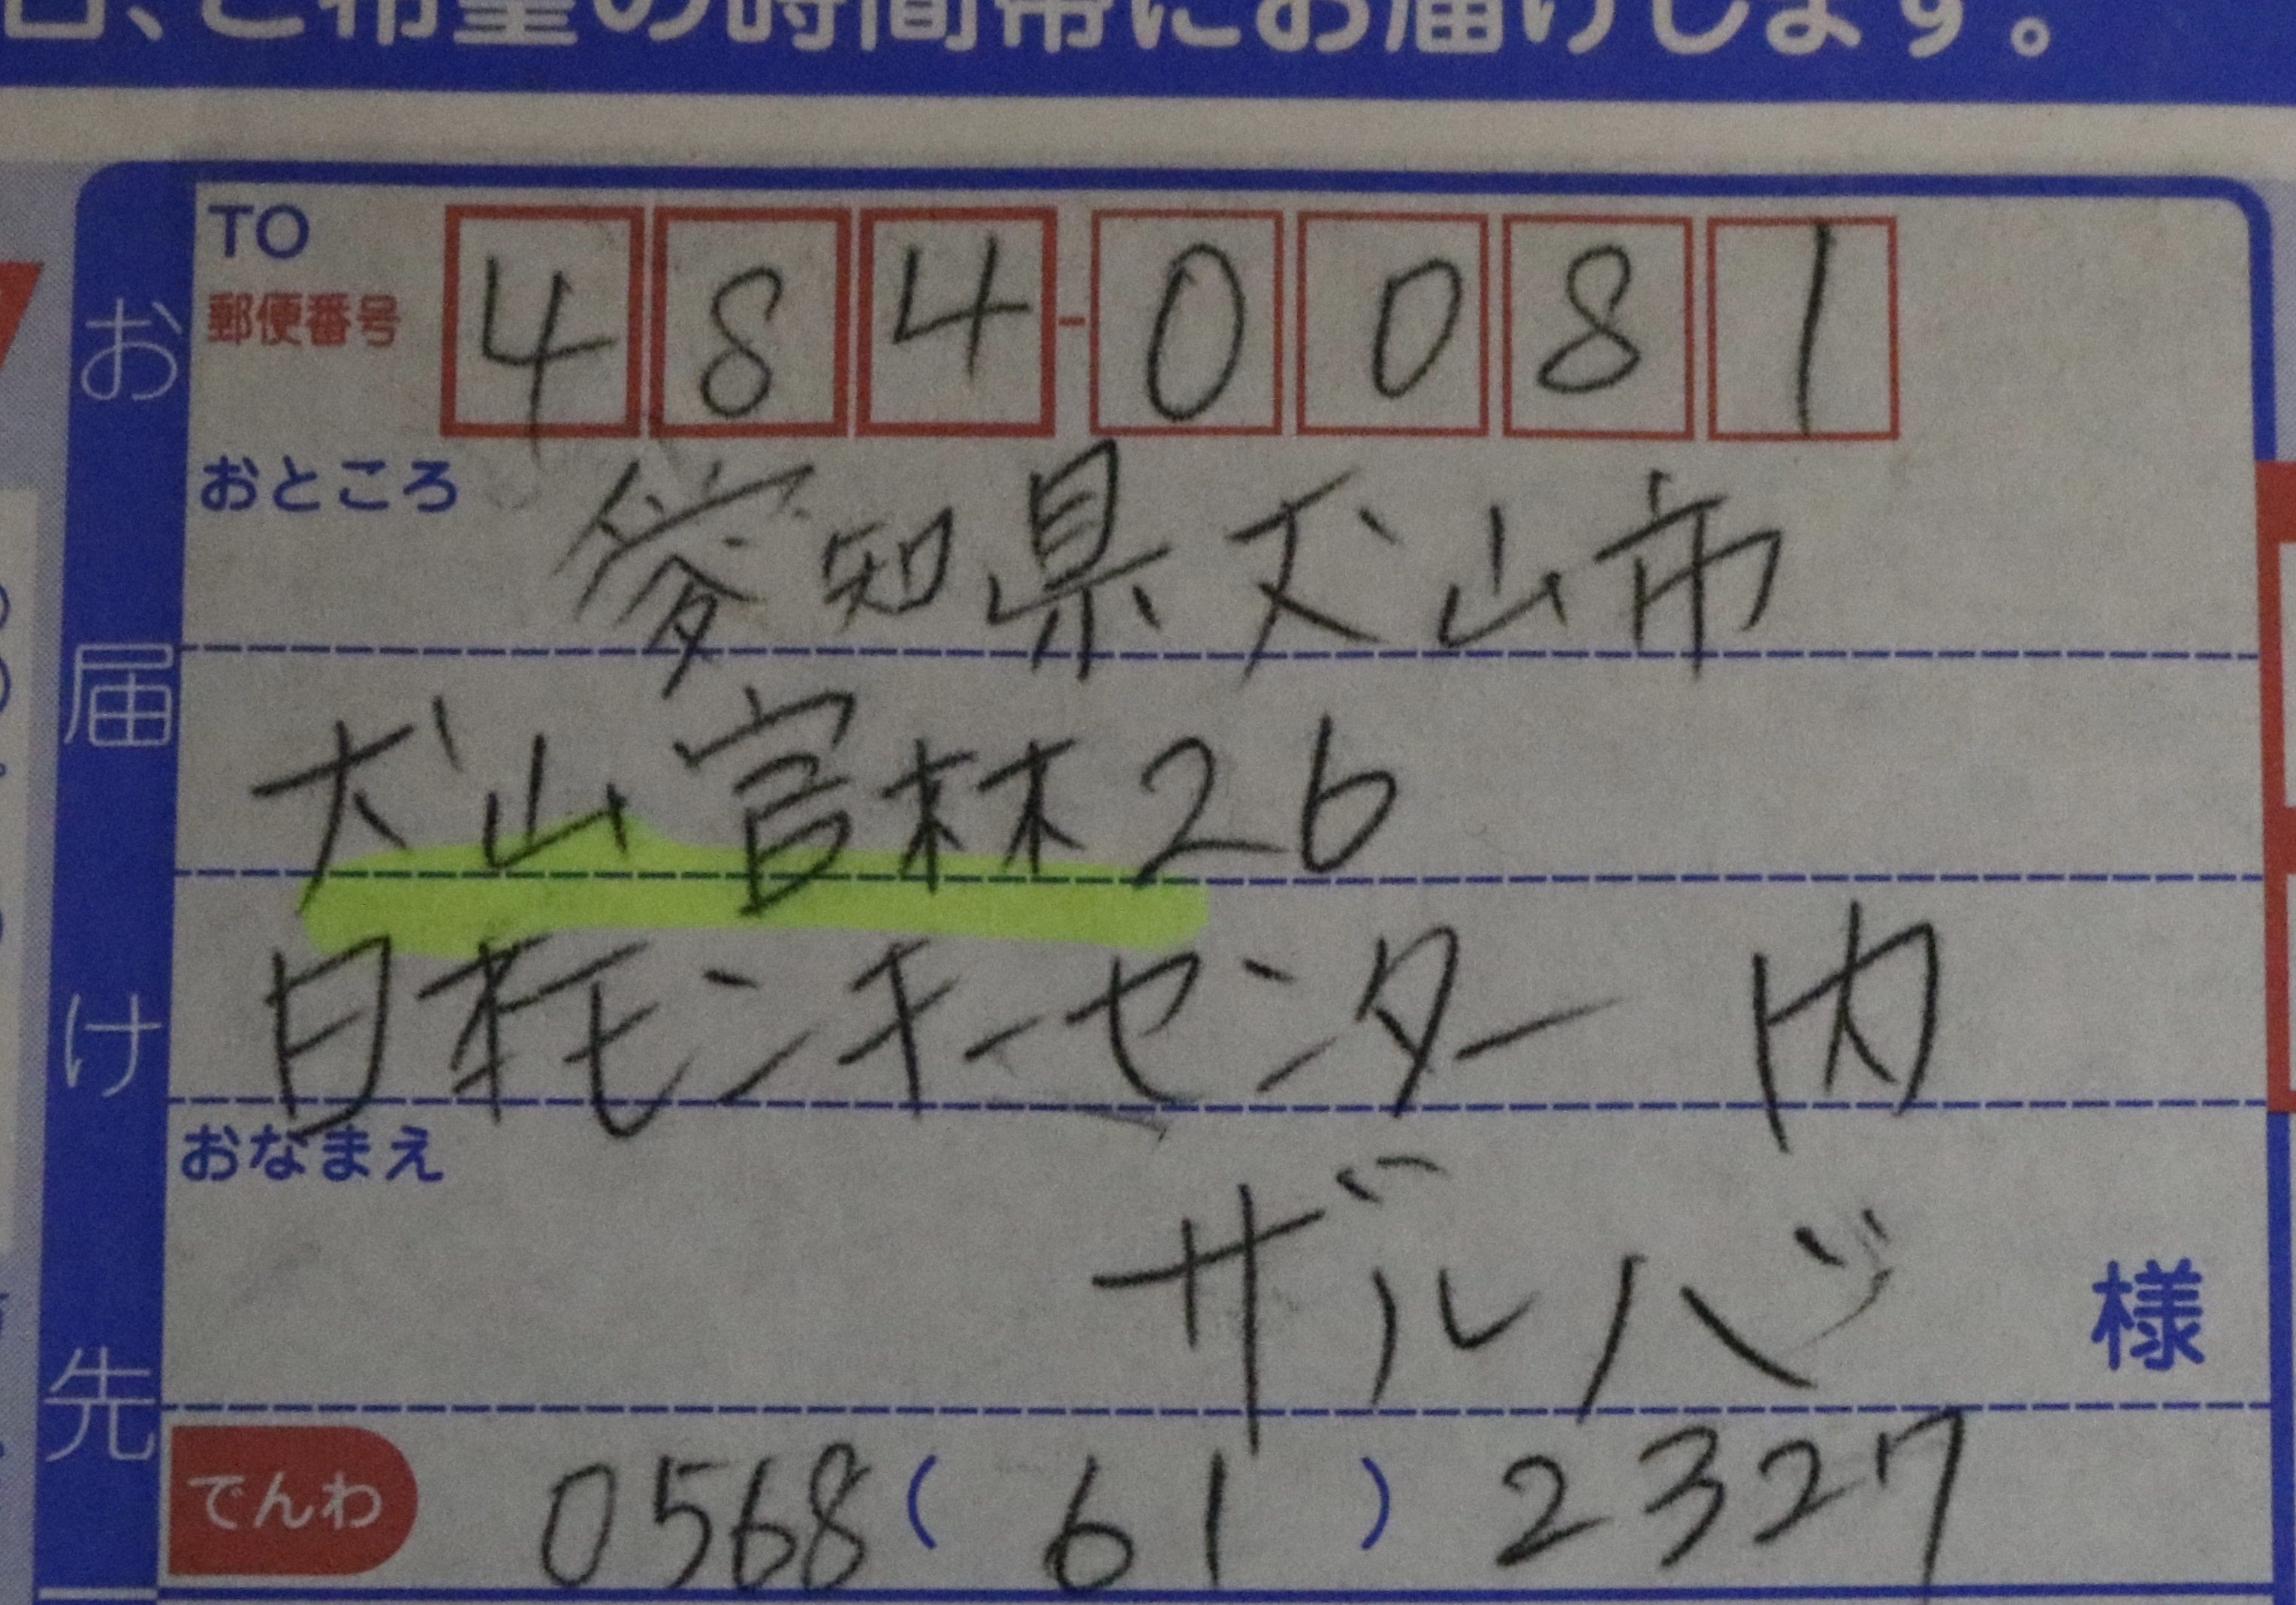 日、ご希望の時間帯にお届けします。
お届け先
TO
郵便番号 484-0081
おところ
愛知県犬山市
犬山官林26
日本モンキーセンター 内
おなまえ
ザルバ 様
でんわ 0568 ( 61 ) 2327